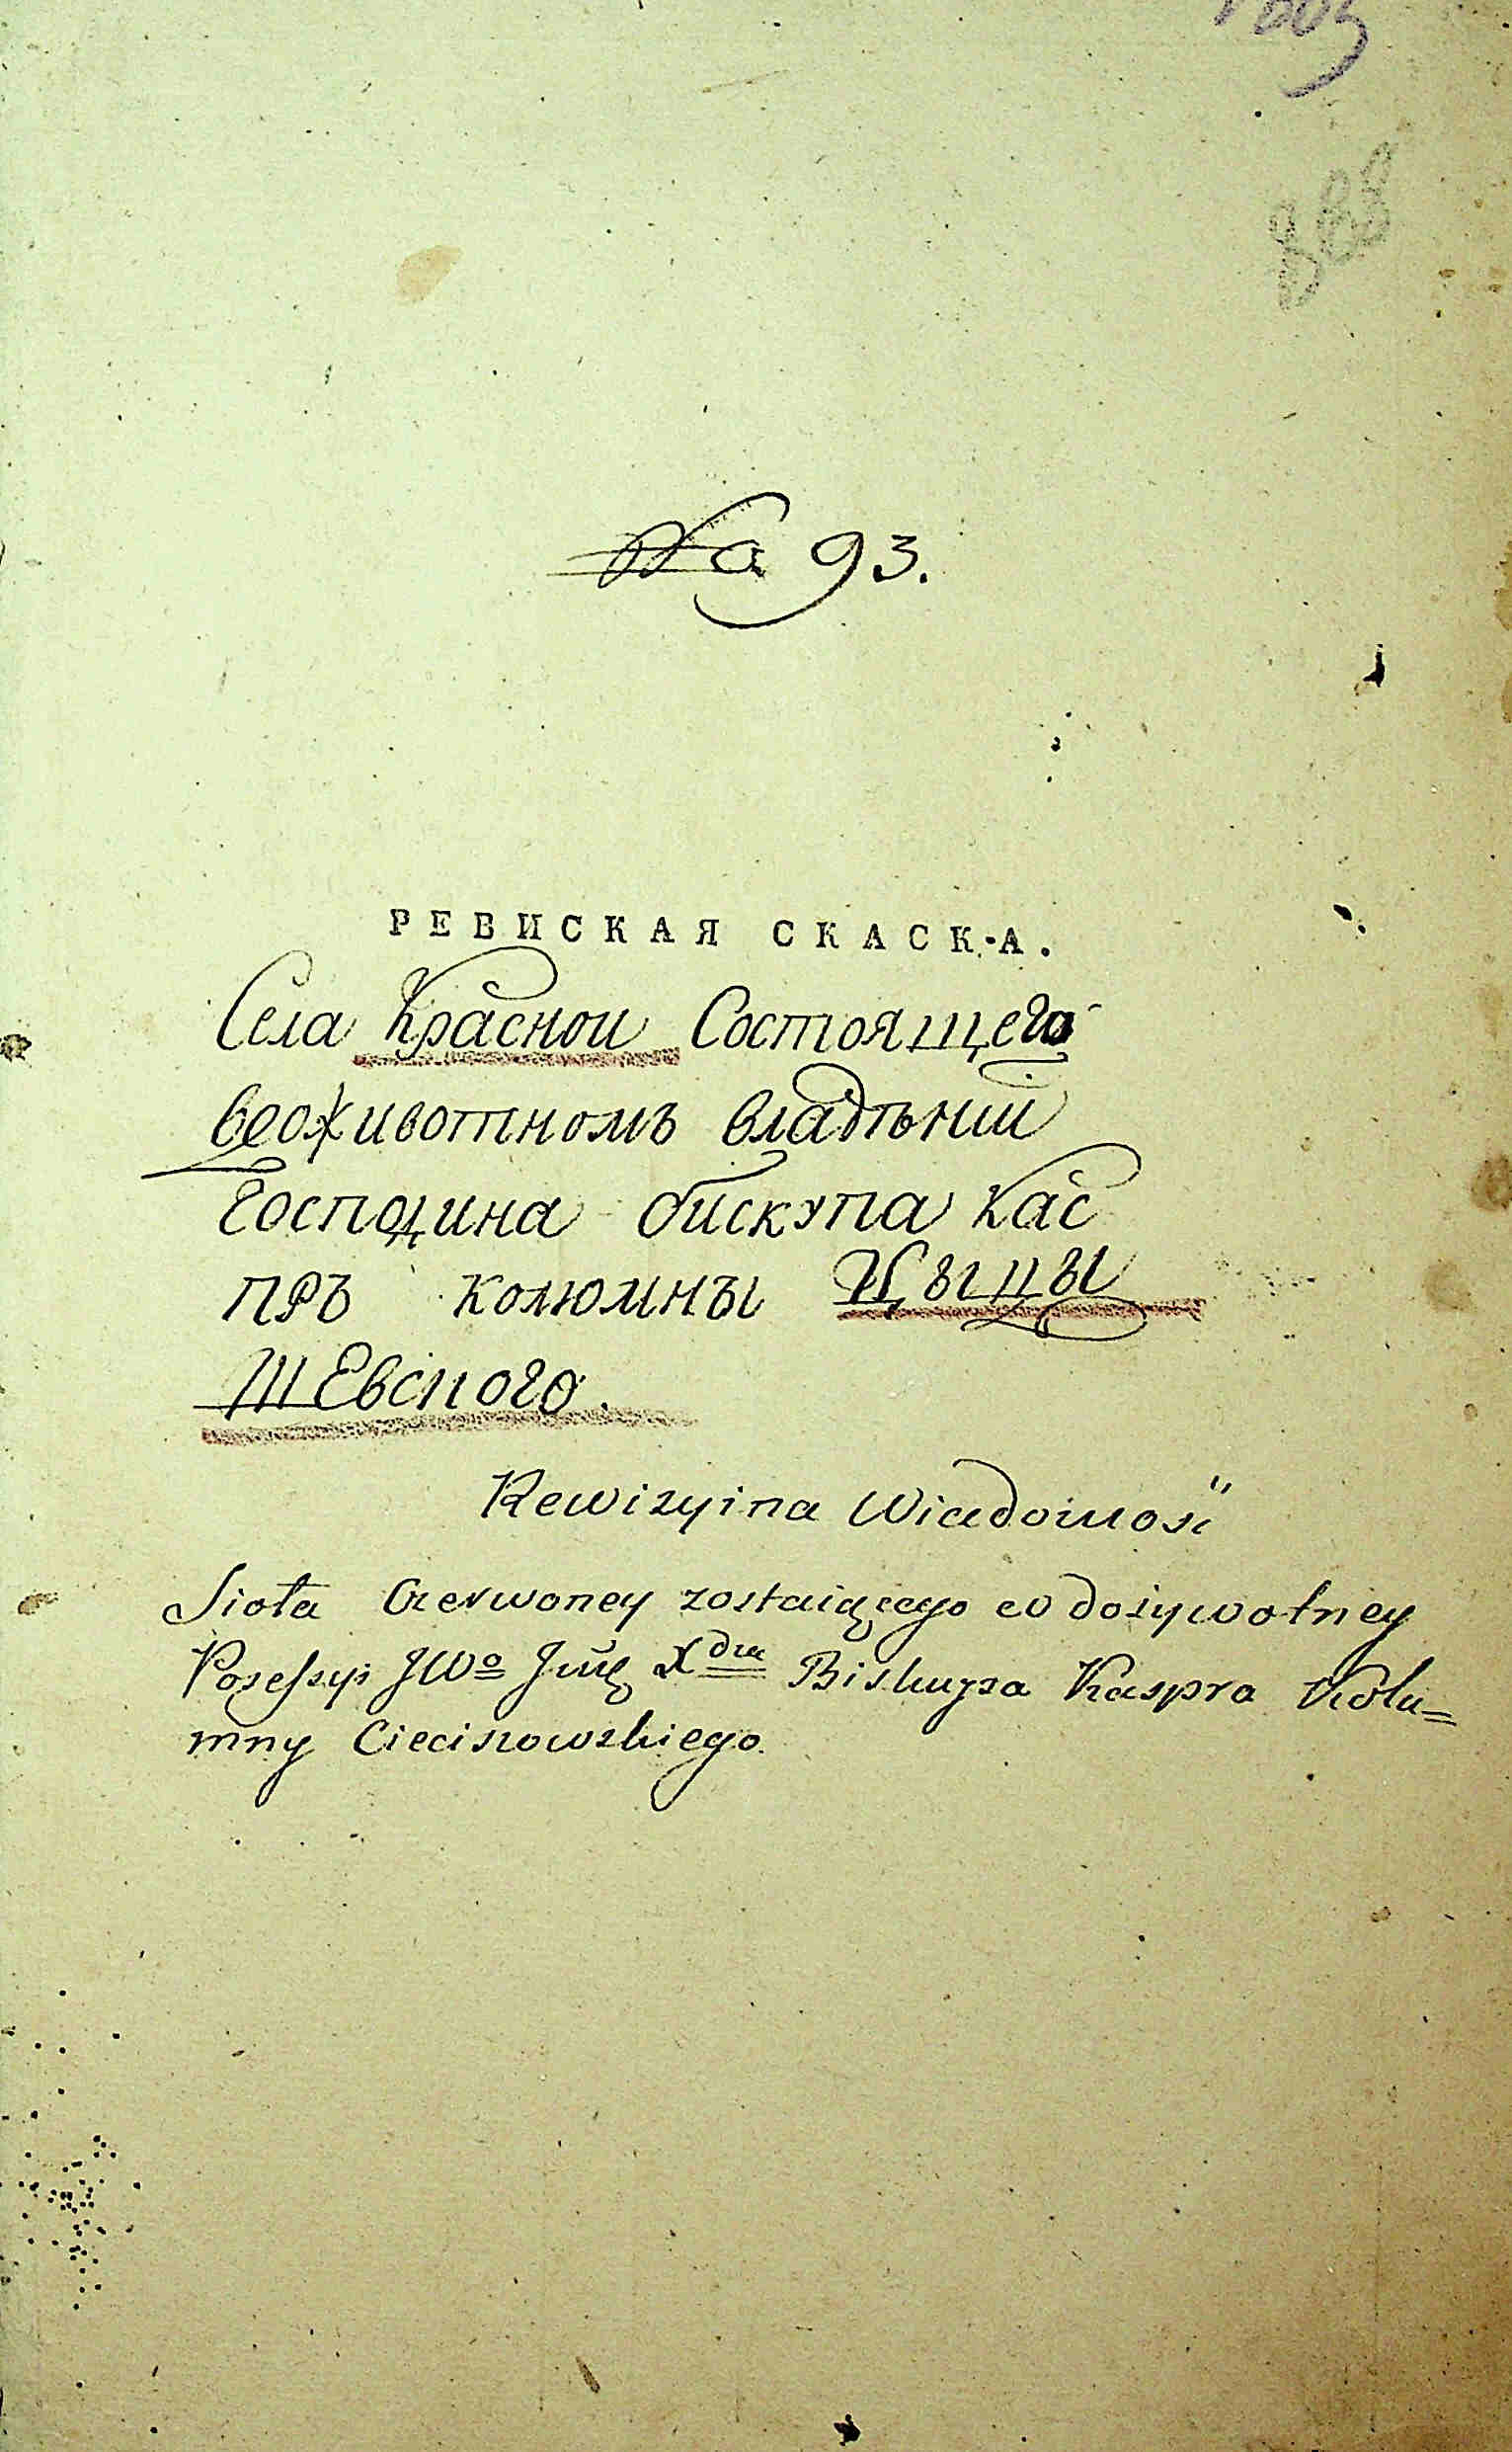 888
№ 93.
РЕВИСКАЯ СКАСКА.
Села Краснои Состоящего
веоживотномъ владѣнии
Господина бискупа Кас
пръ колюмны Цыцы
шевского.
Rewizyina Wiadomość
Sioła Czerwoney zostaiącego w dożywotney
Posessyi JWo Jmę Xdza Biskupa Kaspra Kolu=
mny Cieciszowskiego.